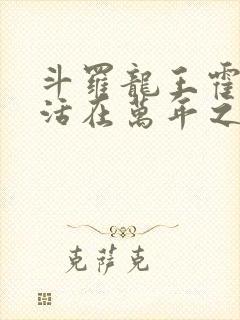 斗羅龍王霍
活在萬年之
克薩克